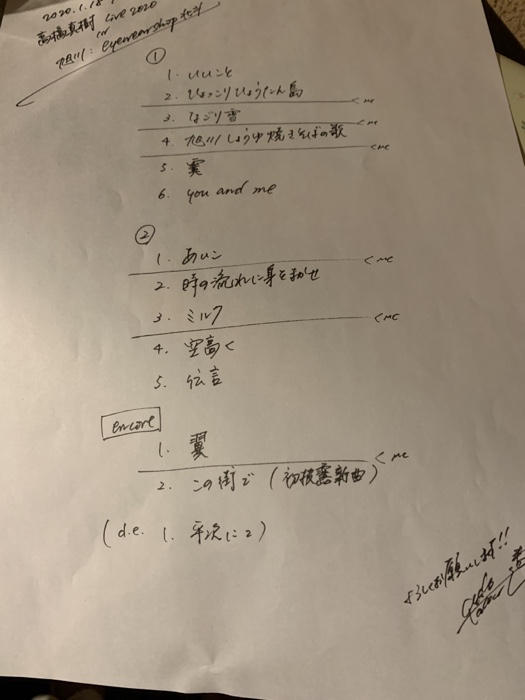 2020.1.18
高橋真樹 Live 2020
in
旭川: eyewearshop
①
1. いいこと
2. ひょっこりひょうたん島
< MC
3. なごり雪
< MC
4. 旭川しょうゆ焼きそばの歌
< MC
5.
6. you and me
②
1. あいこ
< MC
2. 時の流れに身をまかせ
3. ミルク
< MC
4. 空高く
5. 伝言
encore
1. 翼
< MC
2. この街で (初披露新曲)
(d.e. 1. 平次に2)
よろしくお願いします!!